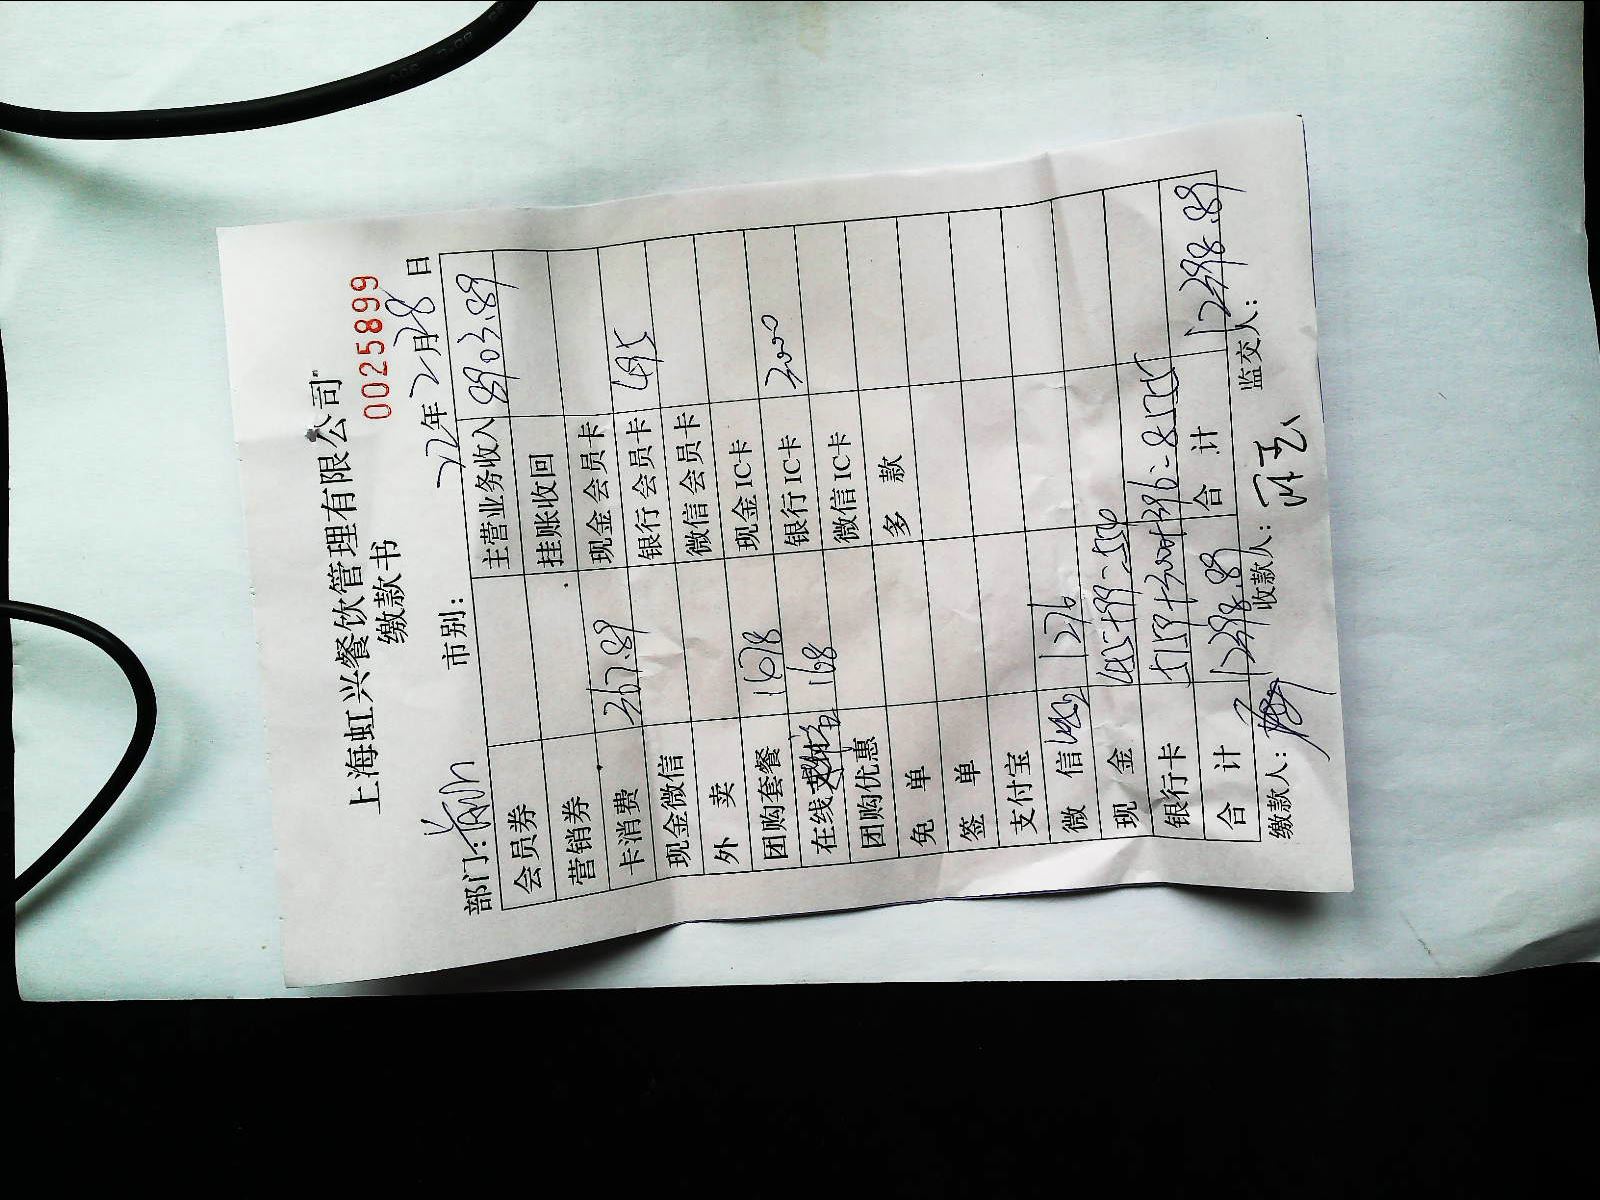 上海虹兴餐饮管理有限公司
缴款书
0025899
部门: 市别: 22年2月28日
会员券 主营业务收入 8903.89
营销券 挂账收回
卡消费 367.89 现金会员卡
现金微信 银行会员卡 495
外 卖 微信会员卡
团购套餐 1678 现金IC卡
在线 168 银行IC卡 3000
团购优惠 微信IC卡
免 单 多 款
签 单
支付宝
微 信 1276
现 金
银行卡
合 计 12398.89 合 计 12398.89
缴款人: 收款人: 监交人: